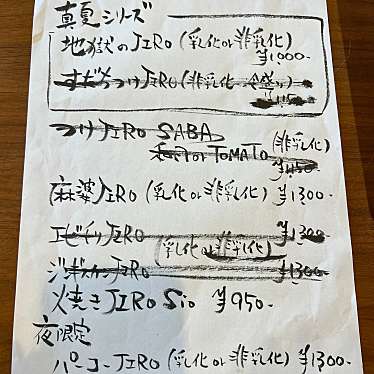 真夏シリーズ
地獄のJIRO (乳化or非乳化)
¥1,000-
すだちつけJIRO (非乳化
つけJIRO SABA
or TOMATO (非乳化)
麻婆JIRO (乳化or非乳化) ¥1300-
エビイリJIRO ¥1300-
(乳化or非乳化)
JIRO ¥1300-
焼きJIRO Sio ¥950-
夜限定
パーコーJIRO (乳化or非乳化) ¥1300-